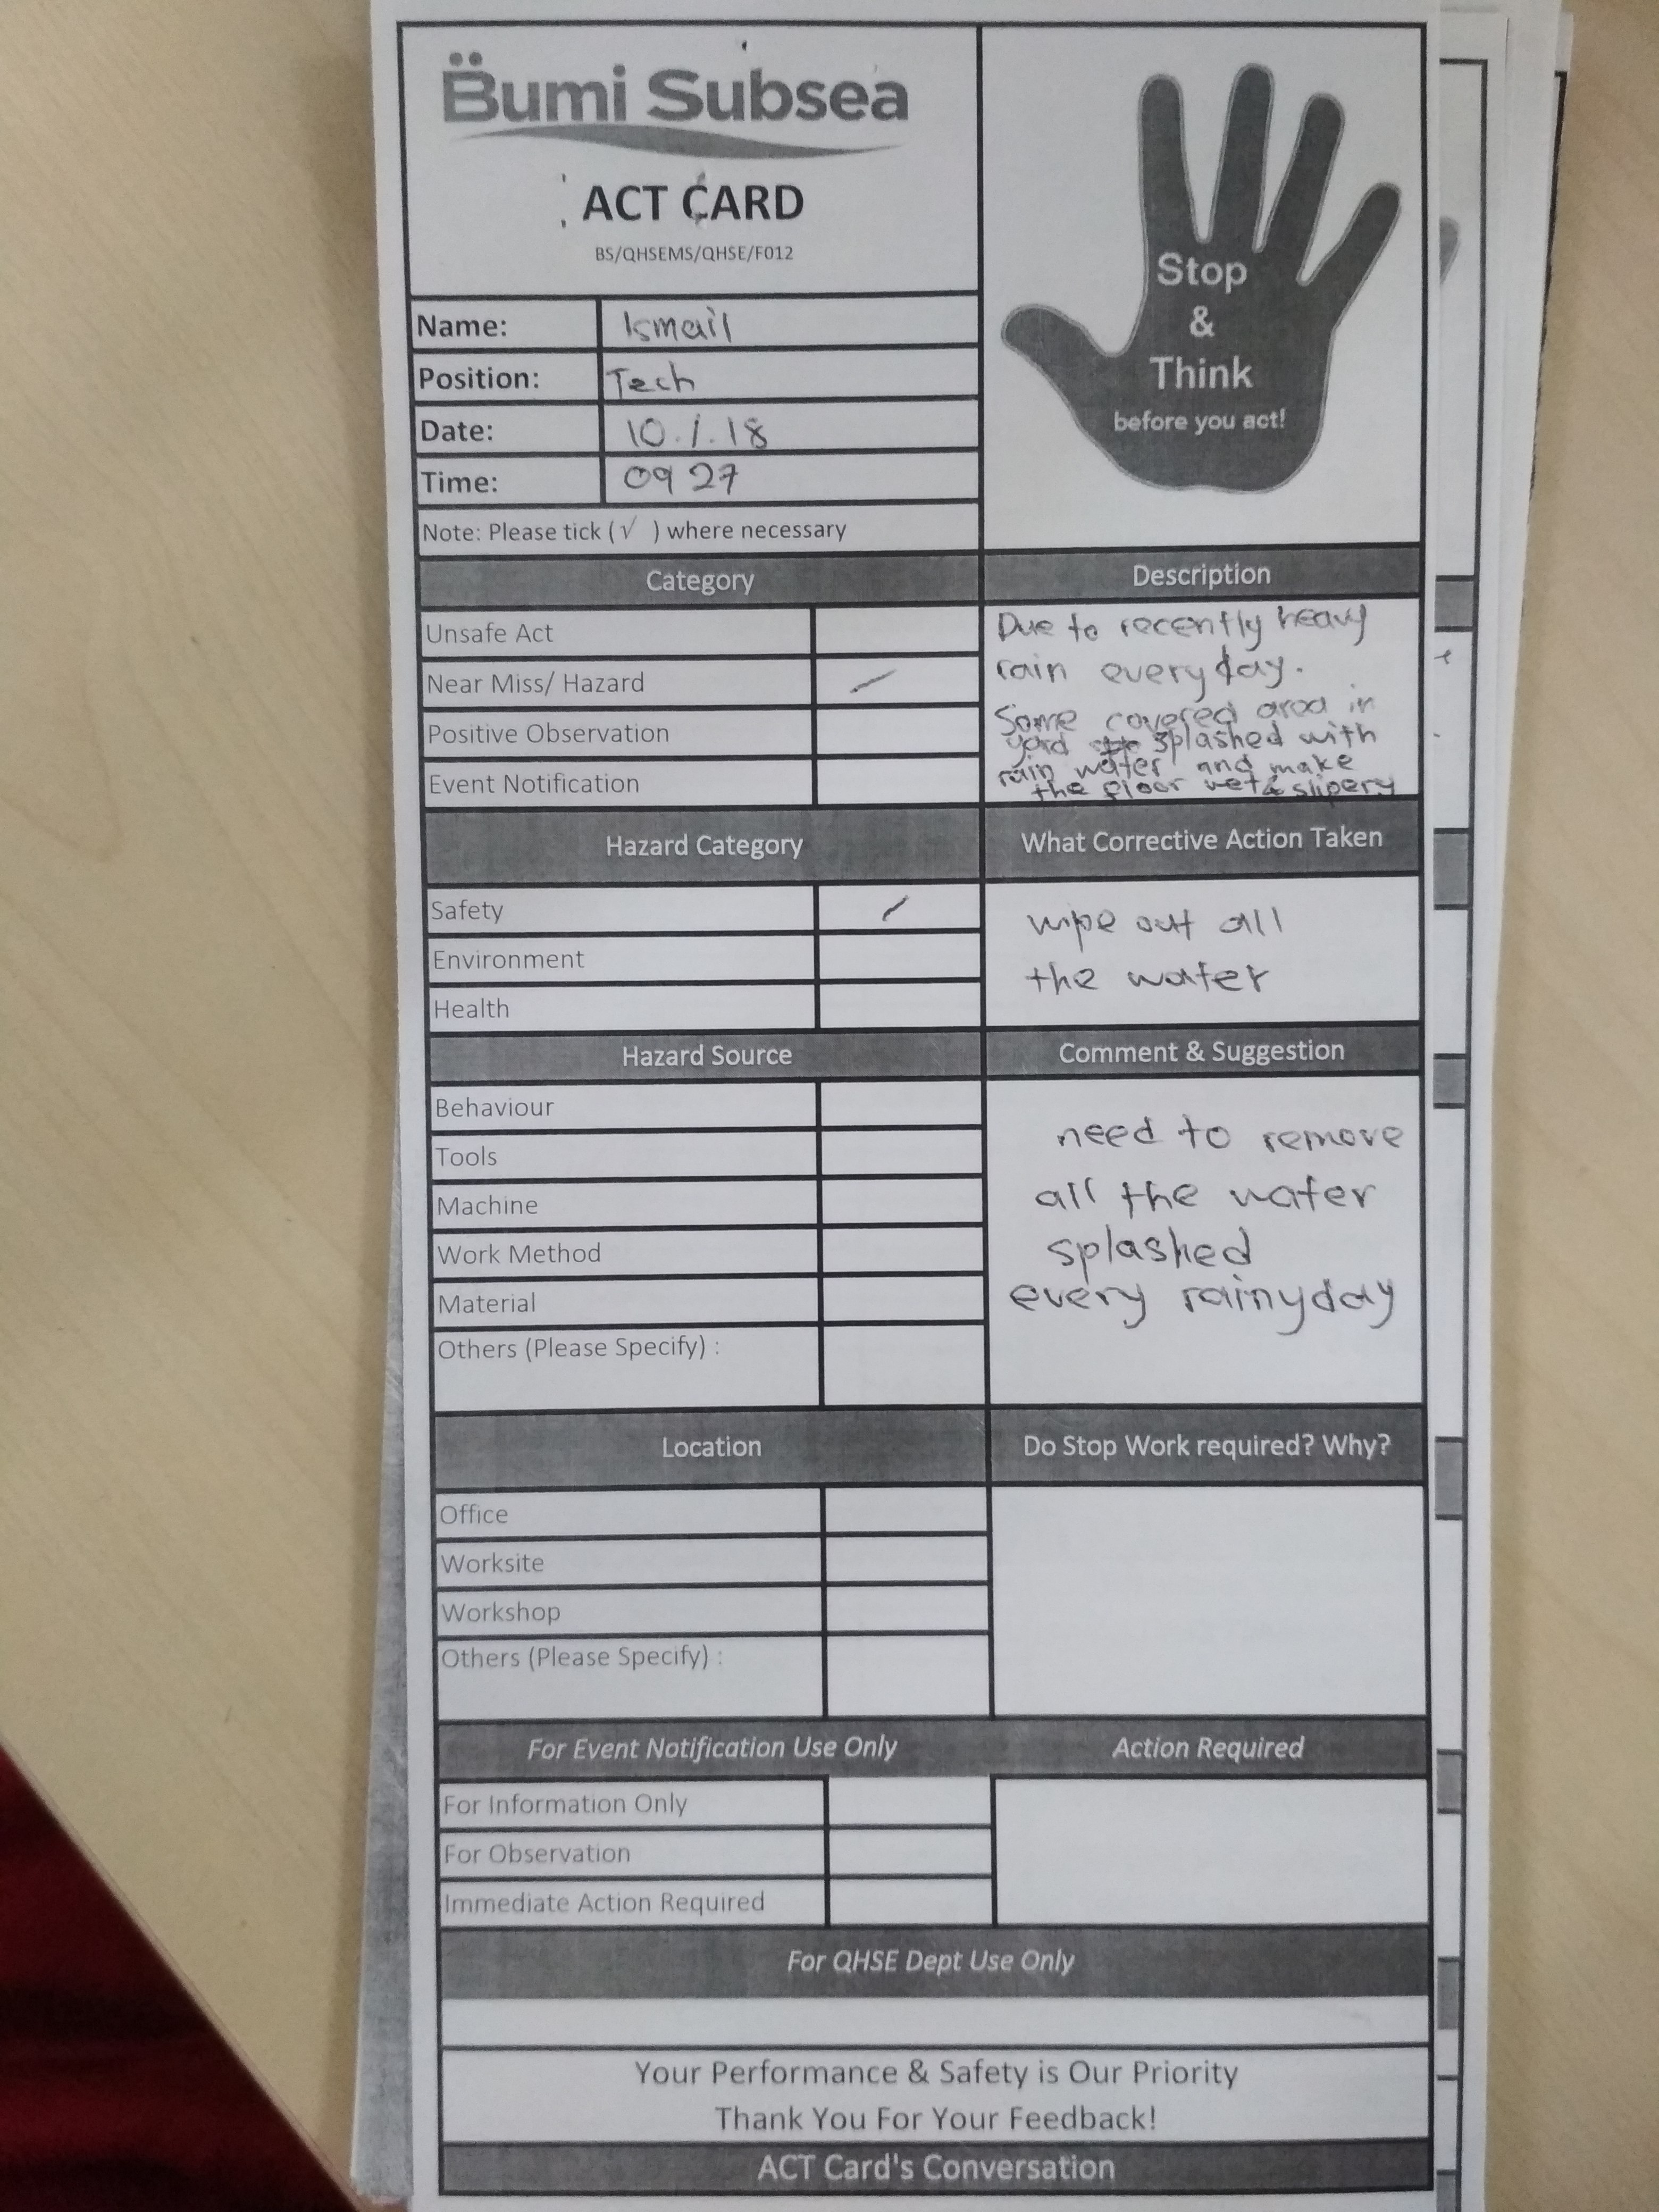 Bumi Subsea
ACT CARD
BS/QHSEMS/QHSE/F012
Stop
&
Think
before you act!
Name: Ismail
Position: Tech
Date: 10.1.18
Time: 09 27
Note: Please tick (√ ) where necessary
Category
Unsafe Act
Near Miss/ Hazard /
Positive Observation
Event Notification
Description
Due to recently heavy
rain everyday.
Some covered area in
yard splashed with
rain water and make
the floor wet & slipery
Hazard Category
Safety /
Environment
Health
What Corrective Action Taken
wipe out all
the water
Hazard Source
Behaviour
Tools
Machine
Work Method
Material
Others (Please Specify) :
Comment & Suggestion
need to remove
all the water
splashed
every rainyday
Location
Office
Worksite
Workshop
Others (Please Specify) :
Do Stop Work required? Why?
For Event Notification Use Only
For Information Only
For Observation
Immediate Action Required
Action Required
For QHSE Dept Use Only
Your Performance & Safety is Our Priority
Thank You For Your Feedback!
ACT Card's Conversation